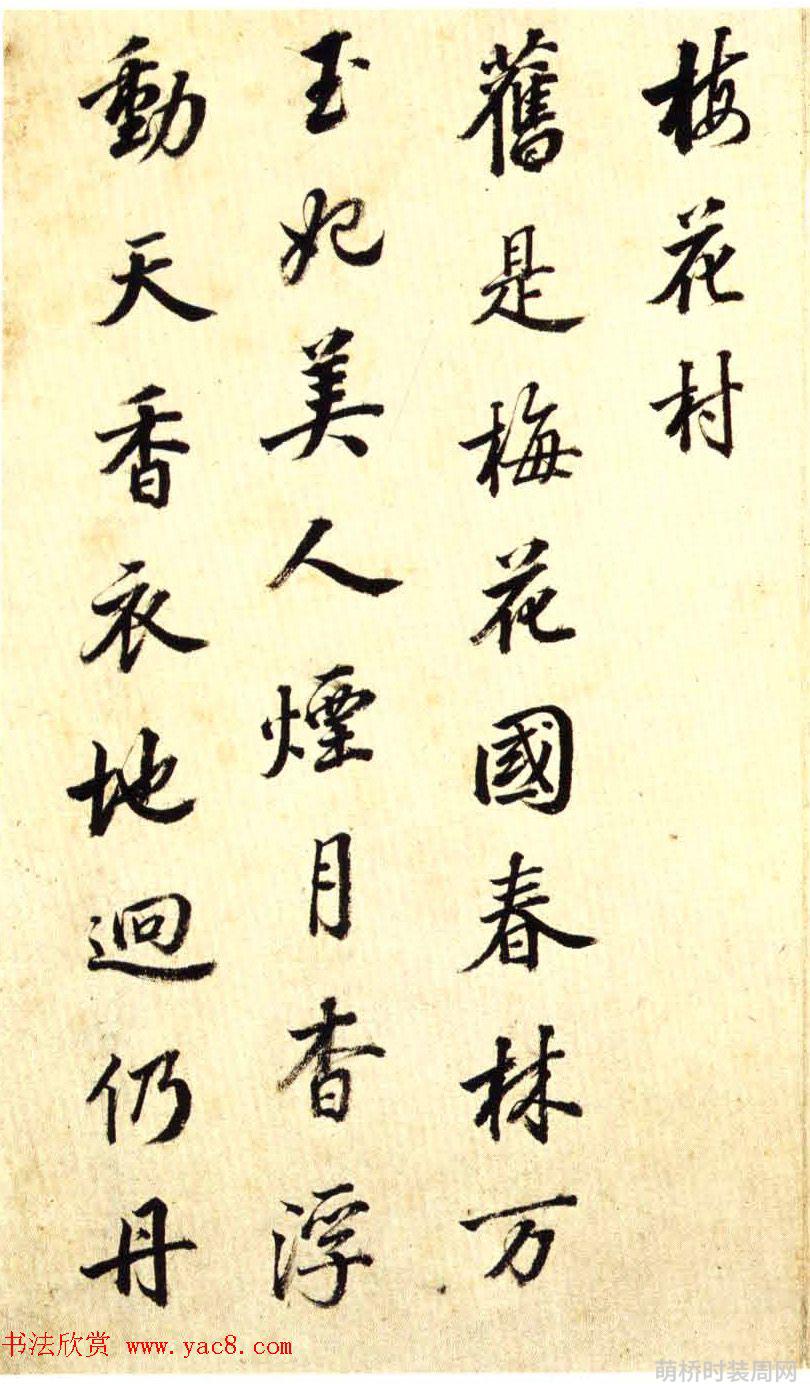 梅花村
舊是梅花國春林万
玉妃美人煙月杳浮
動天香衣地迥仍丹
书法欣赏 www.yac8.com
萌桥时装周网